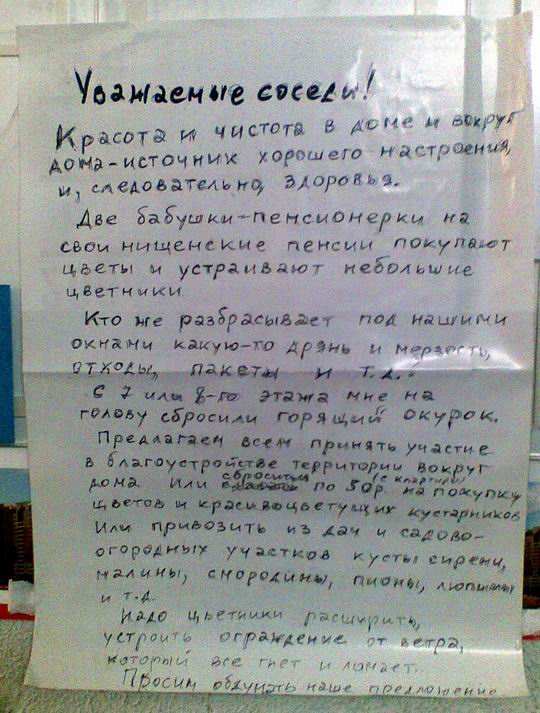 Уважаемые соседи!
Красота и чистота в доме и вокруг
дома-источник хорошего настроения,
и, следовательно, здоровья.
Две бабушки-пенсионерки на
свои нищенские пенсии покупают
цветы и устраивают небольшие
цветники.
Кто же разбрасывает под нашими
окнами какую-то дрянь и мерзость,
отходы, пакеты и т.д.?
С 7 или 8-го этажа мне на
голову сбросили горящий окурок.
Предлагаем всем принять участие
в благоустройстве территории вокруг
дома. Или сброситься по 50р. (с квартиры) на покупку
цветов и красивоцветущих кустарников
Или привозить из дач и садово-
огородных участков кусты сирени,
малины, смородины, пионы,
и т.д.
Надо цветники расширить,
устроить ограждение от ветра,
который все гнет и ломает.
Просим обдумать наше предложение